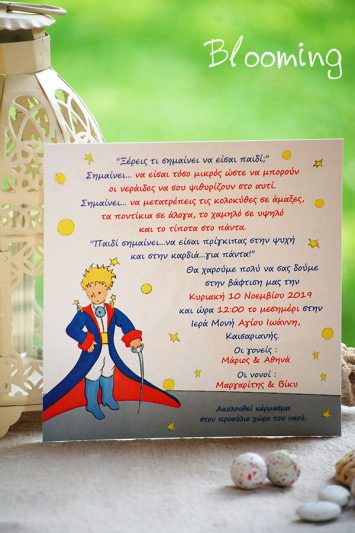 Blooming
"Ξέρεις τι σημαίνει να είσαι παιδί;"
Σημαίνει... να είσαι τόσο μικρός ώστε να μπορούν
οι νεράιδες να σου ψιθυρίζουν στο αυτί.
Σημαίνει... να μετατρέπεις τις κολοκύθες σε άμαξες,
τα ποντίκια σε άλογα, το χαμηλό σε υψηλό
και το τίποτα στο πάντα.
"Παιδί σημαίνει...να είσαι πρίγκιπας στην ψυχή
και στην καρδιά...για πάντα!"
Θα χαρούμε πολύ να σας δούμε
στην βάφτιση μας την
Κυριακή 10 Νοεμβρίου 2019
και ώρα 12:00 το μεσημέρι στην
Ιερά Μονή Αγίου Ιωάννη,
Καισαριανής.
Οι γονείς :
Μάριος & Αθηνά
Οι νονοί :
Μαργαρίτης & Βίκυ
Ακολουθεί κέρασμα
στον προαύλιο χώρο του ναού.